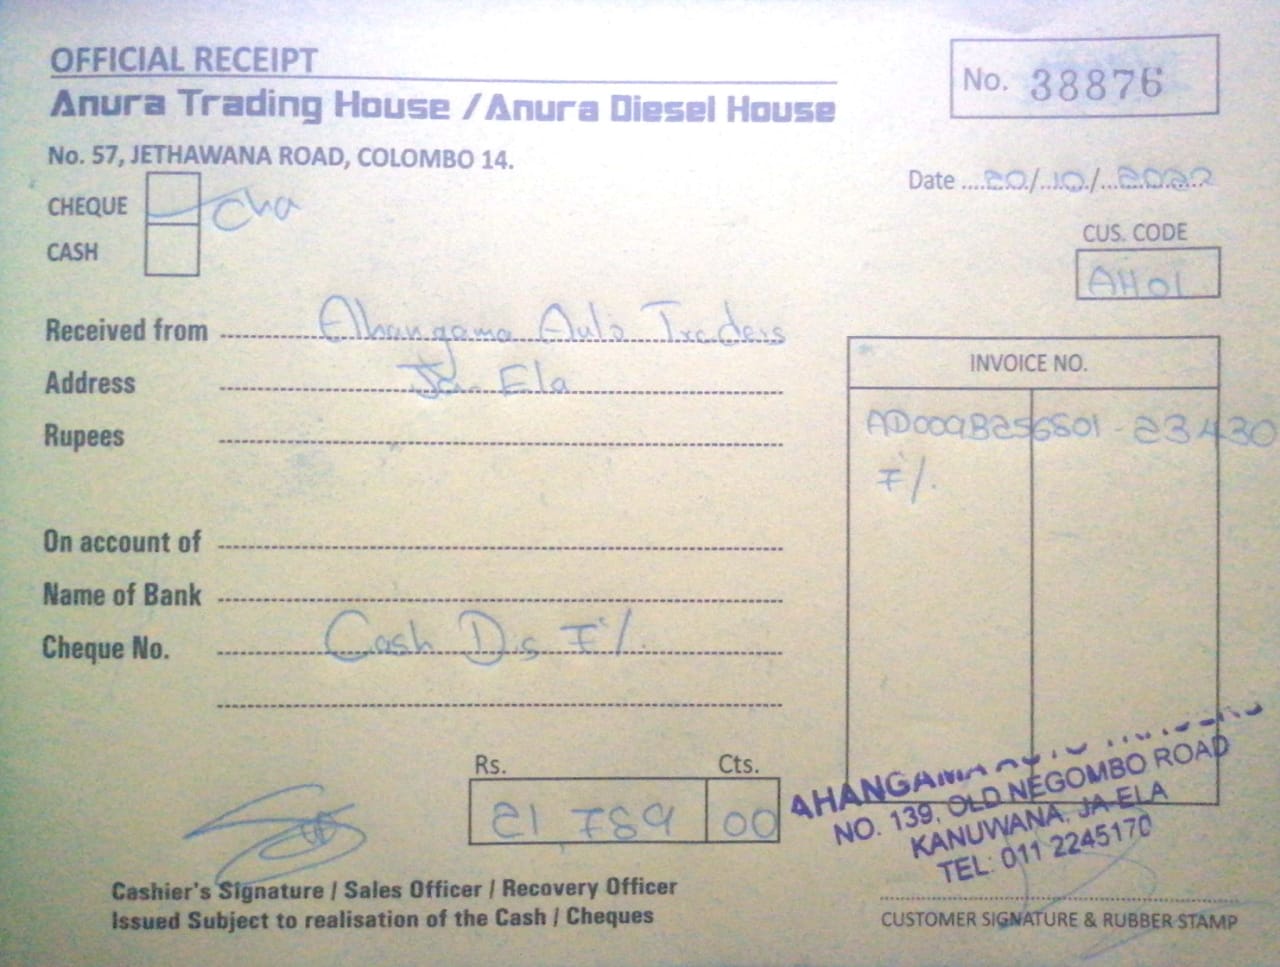 OFFICIAL RECEIPT
No. 38876
Anura Trading House / Anura Diesel House
No. 57, JETHAWANA ROAD, COLOMBO 14.
Date 20/10/2022
CHEQUE
CASH
CUS. CODE
AH01
Received from Ahangama Auto Traders
Address Ja-Ela
Rupees
INVOICE NO.
AD009B256801 - 23430
7%.
On account of
Name of Bank
Cheque No. Cash Dis 7%.
Rs. Cts.
21,789 00
NO. 139, OLD NEGOMBO ROAD
KANUWANA, JA-ELA
TEL: 011 2245170
Cashier's Signature / Sales Officer / Recovery Officer
Issued Subject to realisation of the Cash / Cheques
CUSTOMER SIGNATURE & RUBBER STAMP